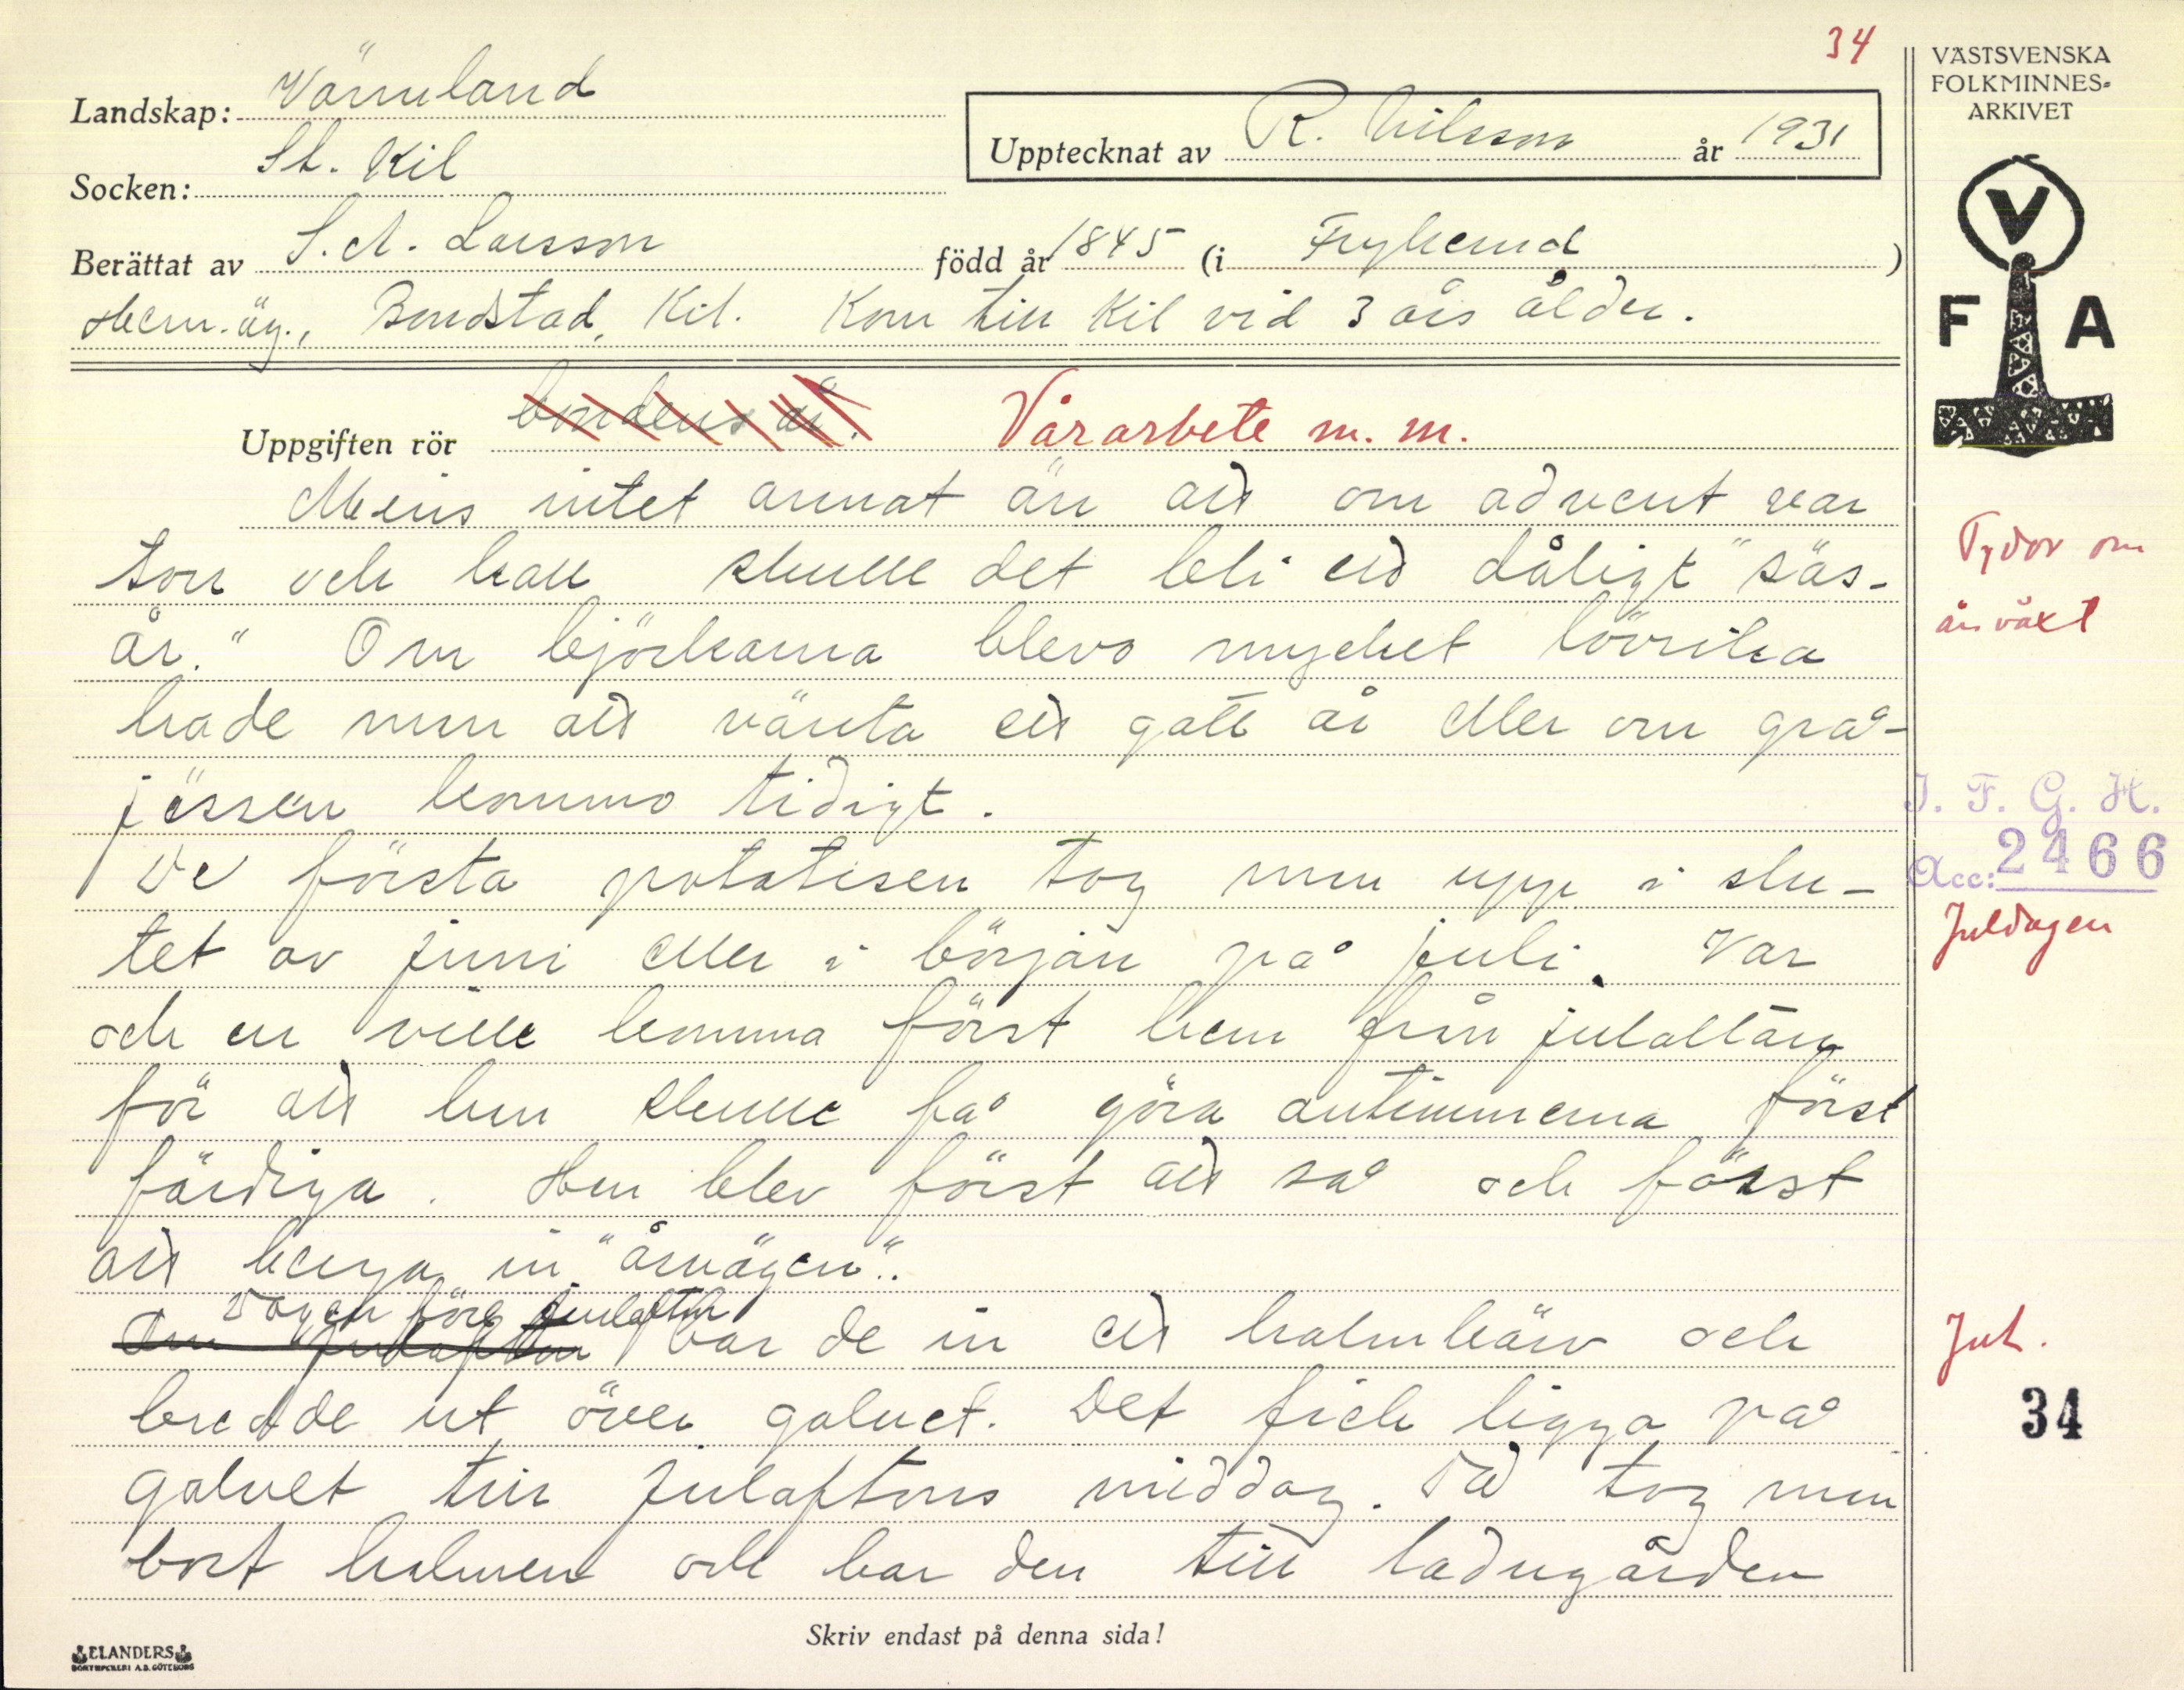 34
VÄSTSVENSKA
FOLKMINNES-
ARKIVET
Landskap: Värmland
Upptecknat av R. Nilsson år 1931
Socken: St. Kil
Berättat av S. A. Larsson född år 1845 (i Frykerud )
Hem.äg., Bondstad, Kil. Kom till Kil vid 3 års ålder.
V
F A
Uppgiften rör bondens år. Vårarbete m. m.
Minns intet annat än att om advent var
torr och kall skulle det bli ett dåligt "säs-
år." Om björkarna blevo mycket lövrika
hade mm att vänta ett gott år eller om grå-
jässen kommo tidigt.
De första potatisen tog mm upp i slu-
tet av juni eller i början på juli. Var
och en ville komma först hem från julottan
för att hm skulle få göra antimmerna först
färdiga. Hm blev först att så och först
att berga in "årsvägen".
Dagen före julafton
Om julafton bar de in ett halmkärv och
bredde ut över golvet. Det fick ligga på
golvet till julaftons middag. Då tog mm
bort halmen och bar den till ladugården
Tydor om
årsväxt
I. F. G. H.
Acc: 2466
Juldagen
Jul.
34
Skriv endast på denna sida!
ELANDERS
BOKTRYCKERI A.B. GÖTEBORG